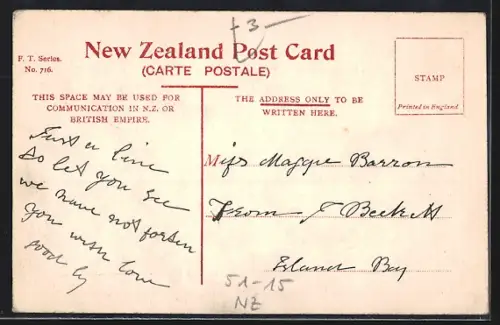 +3-
F. T. Series.
No. 716.
New Zealand Post Card
(CARTE POSTALE)
STAMP
Printed in England
THIS SPACE MAY BE USED FOR
COMMUNICATION IN N.Z. OR
BRITISH EMPIRE.
THE ADDRESS ONLY TO BE
WRITTEN HERE.
Just a line
to let you see
we have not forgten
you with love
good by
Miss Maggie Barron
From J Beckett
Island Bay
51-15
NZ